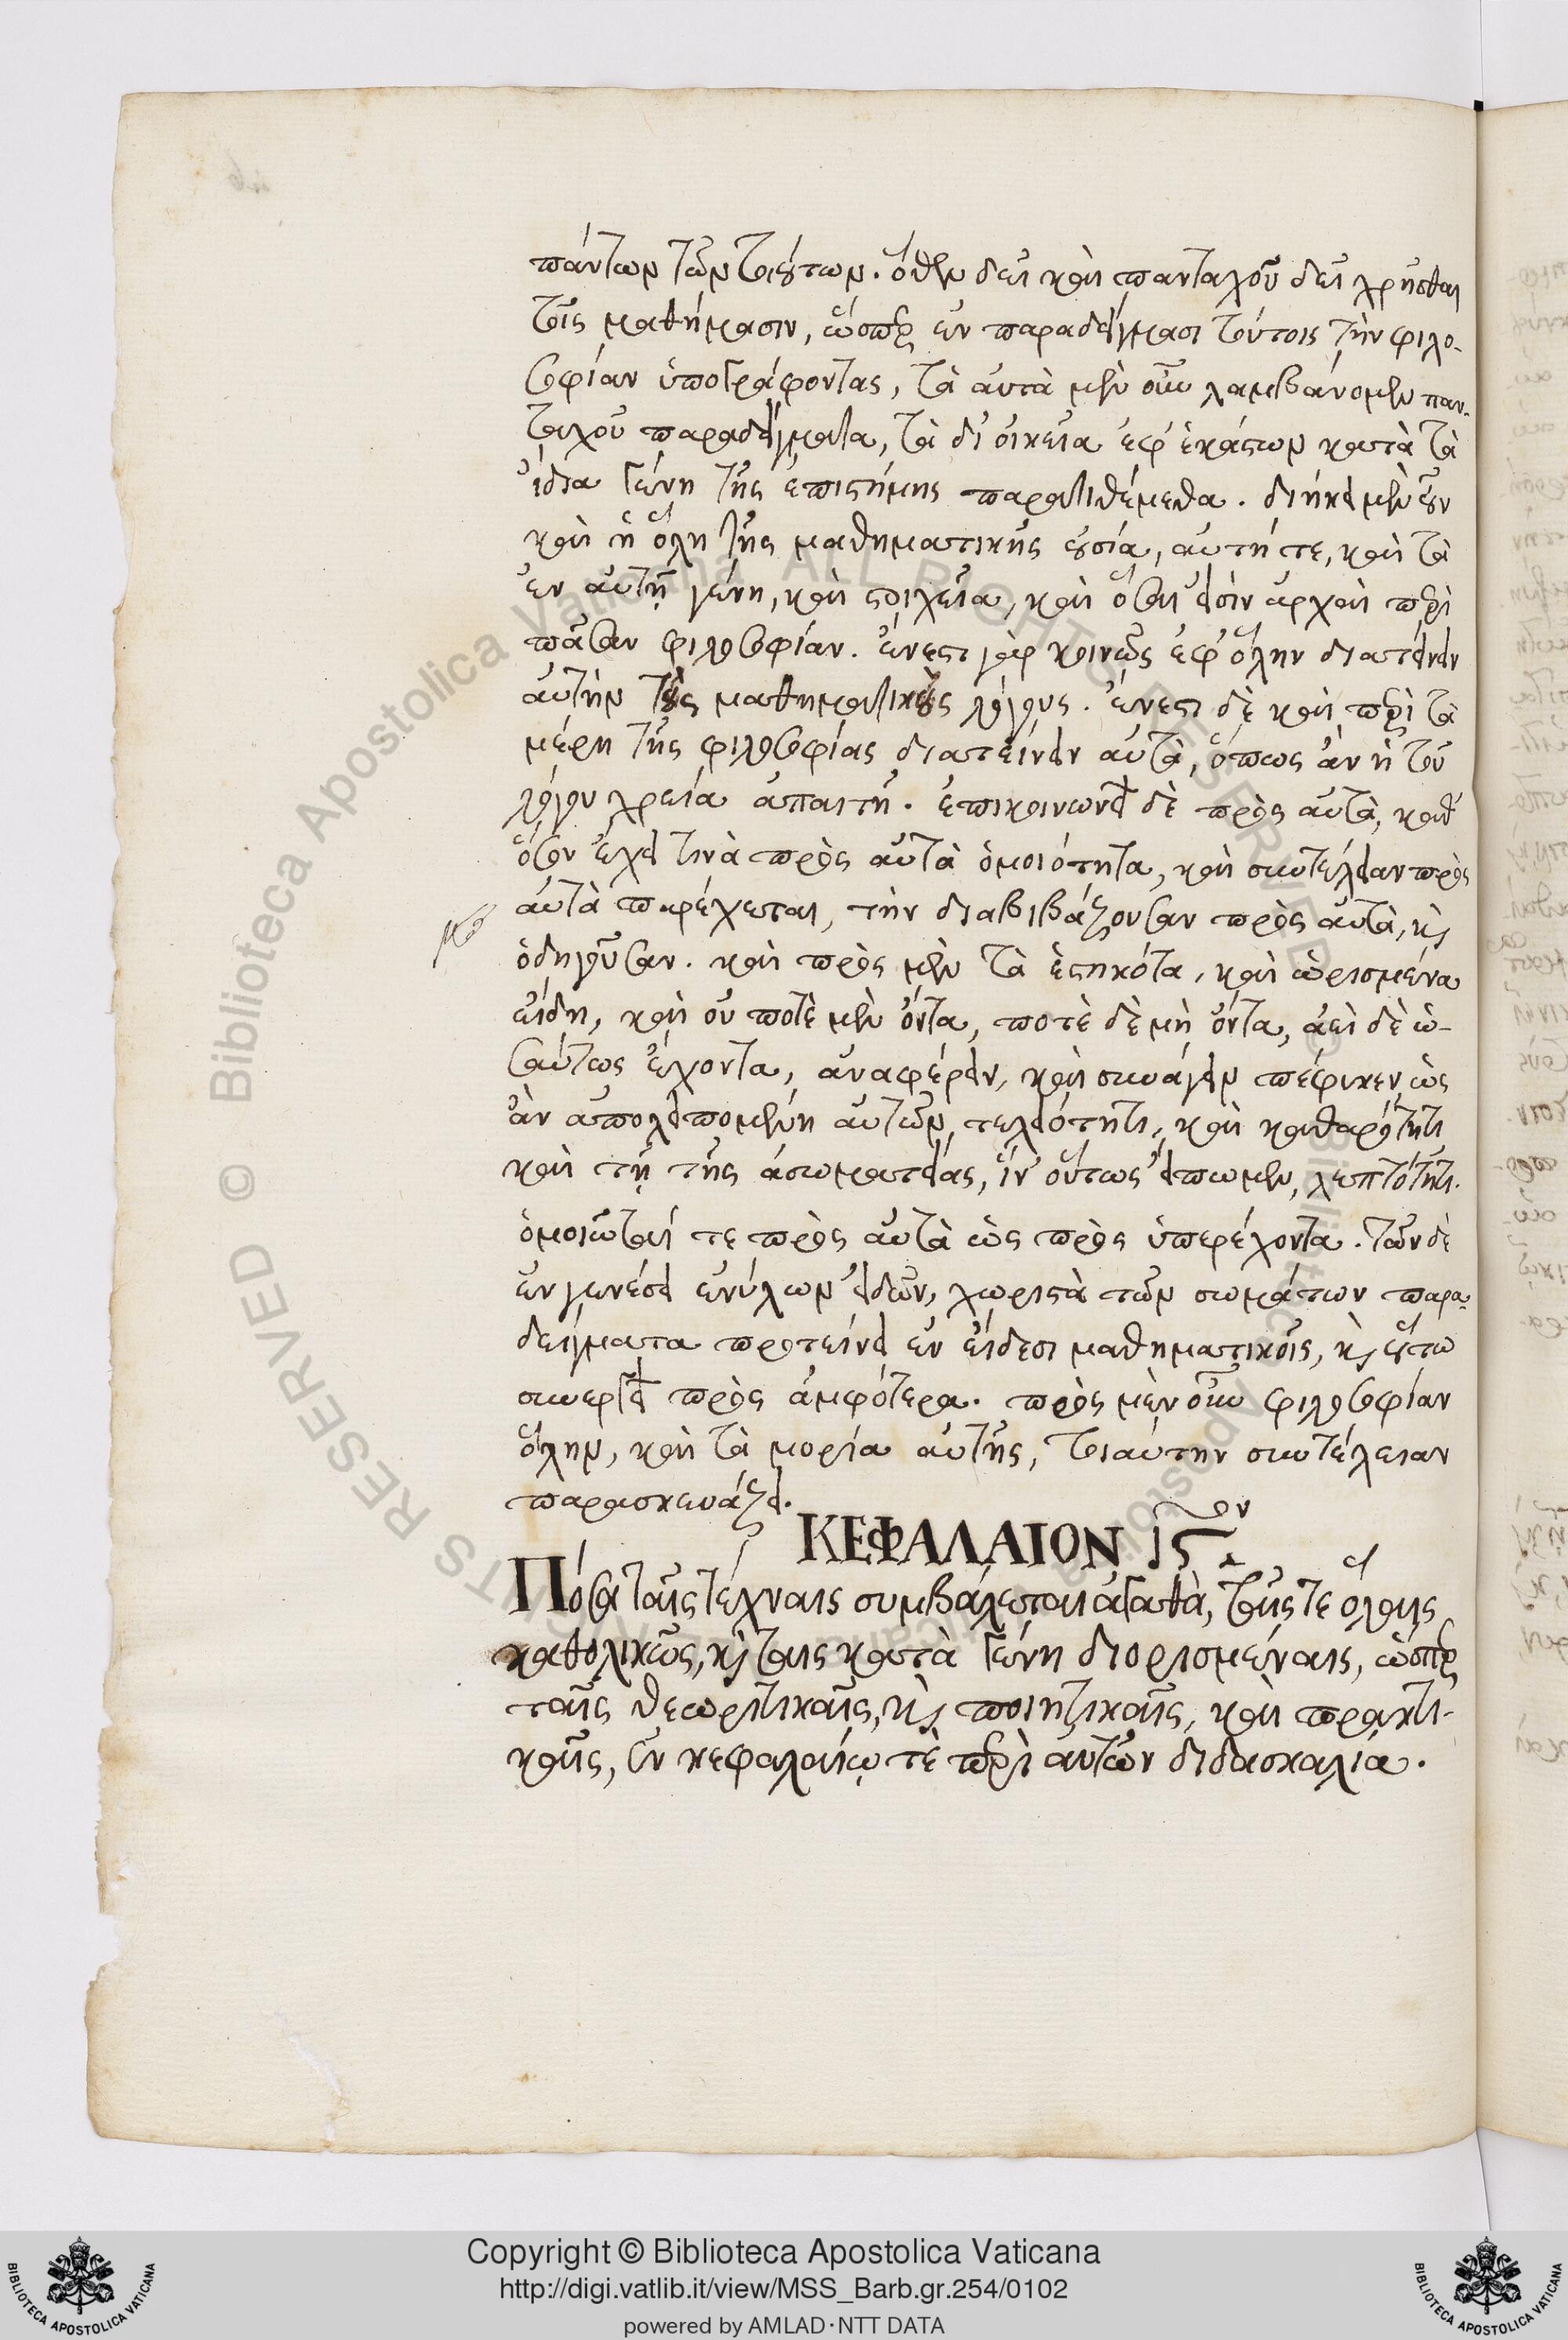 πάντων τῶν τοιούτων. ὅθεν δεῖ καὶ πανταχοῦ δεῖ χρῆσθαι
τοῖς μαθήμασιν, ὥσπερ ἐν παραδείγμασι τούτοις τὴν φιλο-
σοφίαν ὑπογράφοντας, τὰ αὐτὰ μὲν οὖν λαμβάνομεν παν-
ταχοῦ παραδείγματα, τὰ δ' οἰκεῖα ἐφ' ἑκάστων κατὰ τὰ
ἴδια γένη τῆς ἐπιστήμης παρατιθέμεθα. διήκει μὲν οὖν
καὶ ἡ ὅλη τῆς μαθηματικῆς οὐσία, αὐτή τε, καὶ τὰ
ἐν αὐτῇ γένη, καὶ στοιχεῖα, καὶ ὅσαι εἰσὶν ἀρχαὶ περὶ
πᾶσαν φιλοσοφίαν. ἔνεστι γὰρ κοινῶς ἐφ' ὅλην διατείνειν
αὐτὴν τοὺς μαθηματικοὺς λόγους. ἔνεστι δὲ καὶ περὶ τὰ
μέρη τῆς φιλοσοφίας διατείνειν αὐτὰ, ὅπως ἂν ἡ τοῦ
λόγου χρεία ἀπαιτῇ. ἐπικοινωνεῖ δὲ πρὸς αὐτὰ, καθ'
ὅσον ἔχει τινὰ πρὸς αὐτὰ ὁμοιότητα, καὶ συντέλειαν πρὸς
αὐτὰ παρέχεται, τὴν διαβιβάζουσαν πρὸς αὐτὰ, καὶ
ὁδηγοῦσαν. καὶ πρὸς μὲν τὰ ἑστηκότα, καὶ ὡρισμένα
εἴδη, καὶ οὐ ποτὲ μὲν ὄντα, ποτὲ δὲ μὴ ὄντα, ἀεὶ δὲ ὡ-
σαύτως ἔχοντα, ἀναφέρειν, καὶ συνάγειν πέφυκεν, ὡς
ἂν ἀπολειπομένη αὐτῶν, τελειότητι, καὶ καθαρότητι
καὶ τῇ τῆς ἀσωματείας, ἵν' οὕτως εἴπωμεν, λεπτότητι.
ὁμοιῶται τε πρὸς αὐτὰ ὡς πρὸς ὑπερέχοντα. τῶν δὲ
ἐν γενέσει ἐνύλων εἰδῶν, χωριστὰ τῶν σωμάτων παρα-
δείγματα προτείνει ἐν εἴδεσι μαθηματικοῖς, καὶ οὕτω
συνεργεῖ πρὸς ἀμφότερα. πρὸς μὲν οὖν φιλοσοφίαν
ὅλην, καὶ τὰ μορία αὐτῆς, τοιαύτην συντέλειαν
παρασκευάζει.
ΚΕΦΑΛΑΙΟΝ ιϛ^ον
Πόσα ταῖς τέχναις συμβάλεται ἀγαθὰ, ταῖς τε ὅλαις
καθολικῶς, καὶ ταις κατὰ γένη διορισμέναις, ὥσπερ
ταῖς θεωρητικαῖς, καὶ ποιητικαῖς, καὶ πρακτι-
καῖς, ἐν κεφαλαίῳ τὲ περὶ αὐτῶν διδασκαλία.
© Biblioteca Apostolica Vaticana ALL RIGHTS RESERVED
Copyright © Biblioteca Apostolica Vaticana
http://digi.vatlib.it/view/MSS_Barb.gr.254/0102
powered by AMLAD·NTT DATA
BIBLIOTECA APOSTOLICA VATICANA
BIBLIOTECA APOSTOLICA VATICANA